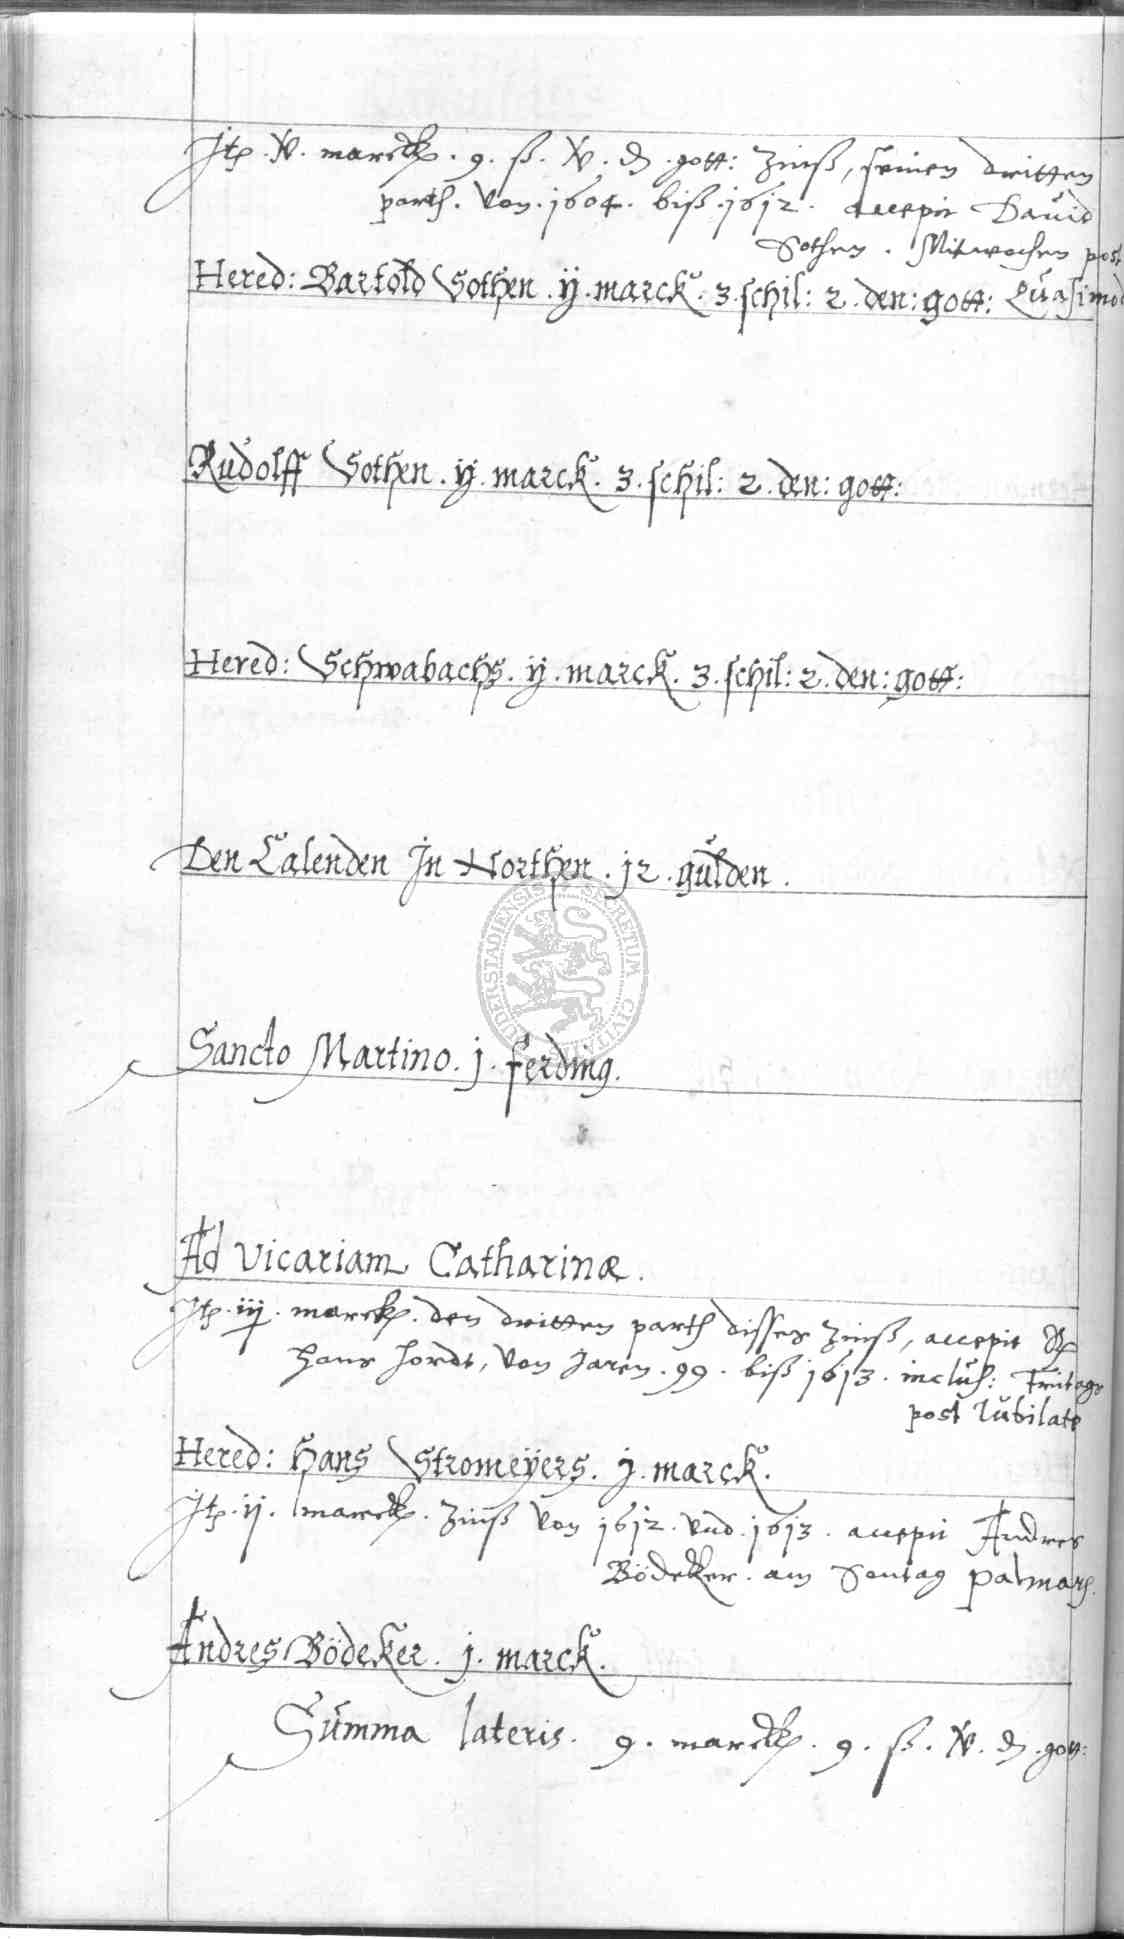 Itē. iv. marck. 9. ß. iv. ₰. gott: Zinß, seinen dritten
parth. Von. 1604. biß. 1612. accepit David
Sothen. Mitwochen post
Hered: Bartold Sothen. ij. marck. 3. schil: 2. den: gott: Quasimod
Rudolff Sothen. ij. marck. 3. schil: 2. den: gott:
Hered: Schwabachs. ij. marck. 3. schil: 2. den: gott:
Den Calenden In Northen. 12. gulden.
Sancto Martino. j. ferding.
Ad Vicariam Catharinæ.
Itē. iij. marck. den dritten parth disses Zinß, accepit
Hans Hordt, Von Jaren. 99. biß 1613. inclus: Fritags
post Iubilate
Hered: Hans Stromeÿers. j. marck.
Itē. ij. marck. Zinß Von 1612. Und. 1613. accepit Andres
Bödeker. am Sontag palmarū.
Andres Bödeker. j. marck.
Summa lateris. 9. marck. 9. ß. iv. ₰. gott:
DUDERSTADIENSIS SECRETUM CIVITATIS